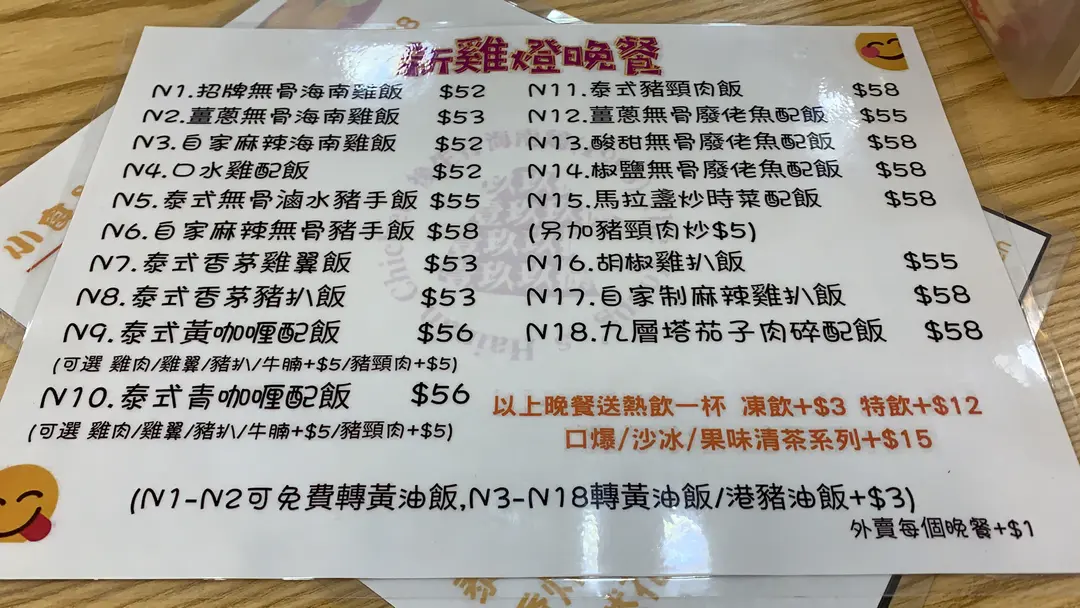 新雞燈晚餐
N1.招牌無骨海南雞飯 $52
N2.薑蔥無骨海南雞飯 $53
N3.自家麻辣海南雞飯 $52
N4.口水雞配飯 $52
N5.泰式無骨滷水豬手飯 $55
N6.自家麻辣無骨豬手飯 $58
N7.泰式香茅雞翼飯 $53
N8.泰式香茅豬扒飯 $53
N9.泰式黃咖喱配飯 $56
(可選 雞肉/雞翼/豬扒/牛腩+$5/豬頸肉+$5)
N10.泰式青咖喱配飯 $56
(可選 雞肉/雞翼/豬扒/牛腩+$5/豬頸肉+$5)
N11.泰式豬頸肉飯 $58
N12.薑蔥無骨廢佬魚配飯 $55
N13.酸甜無骨廢佬魚配飯 $58
N14.椒鹽無骨廢佬魚配飯 $58
N15.馬拉盞炒時菜配飯 $58
(另加豬頸肉炒$5)
N16.胡椒雞扒飯 $55
N17.自家制麻辣雞扒飯 $58
N18.九層塔茄子肉碎配飯 $58
以上晚餐送熱飲一杯 凍飲+$3 特飲+$12
口爆/沙冰/果味清茶系列+$15
(N1-N2可免費轉黃油飯,N3-N18轉黃油飯/港豬油飯+$3)
外賣每個晚餐+$1